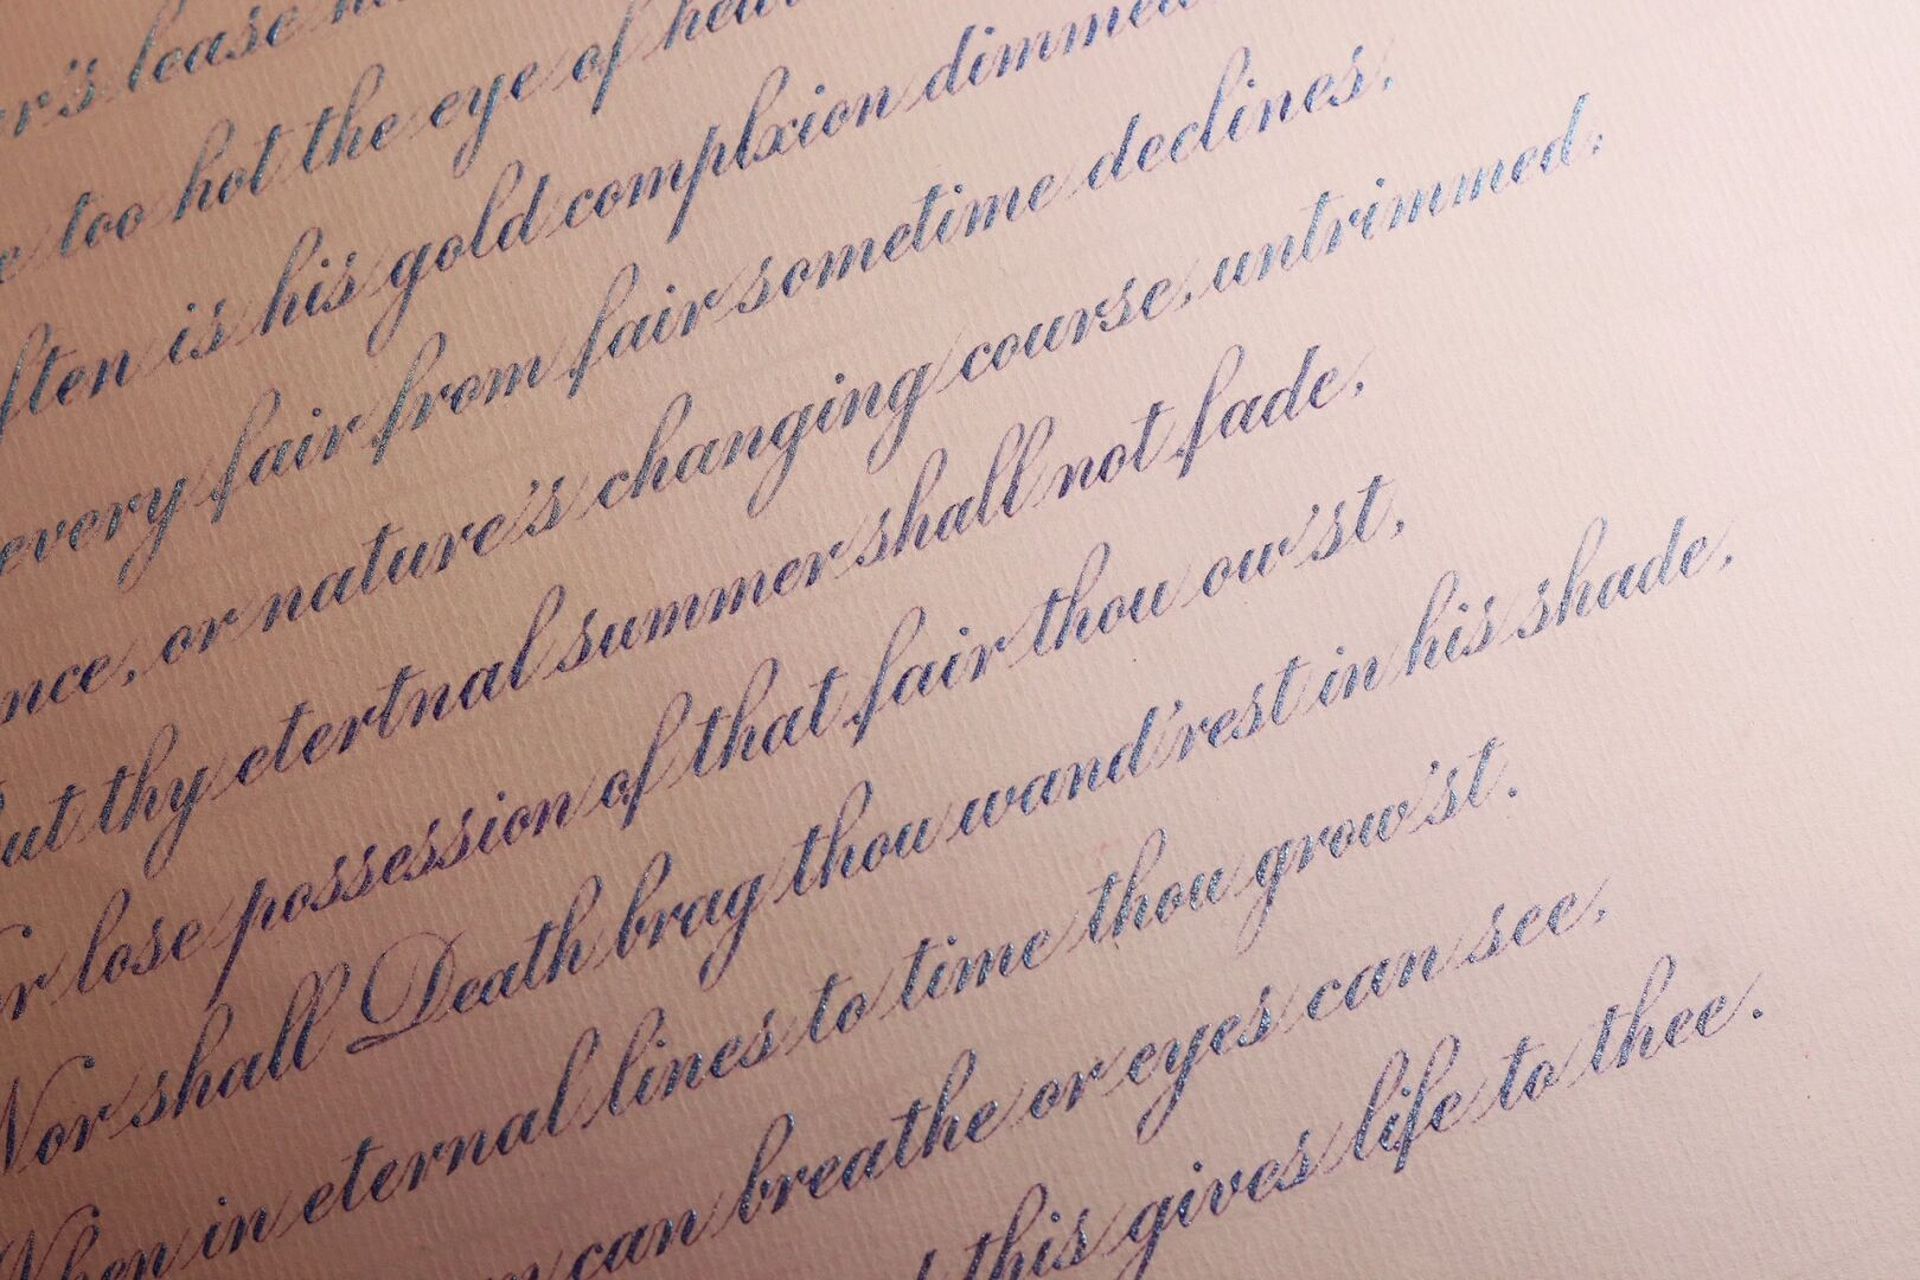 r's lease
too hot the eye of
ften is his gold complxion dimmed
every fair from fair sometime declines,
nce, or nature's changing course, untrimmed:
ut thy etertnal summer shall not fade,
r lose possession of that fair thou ow'st,
Nor shall Death brag thou wand'rest in his shade,
When in eternal lines to time thou grow'st.
can breathe or eyes can see,
this gives life to thee.